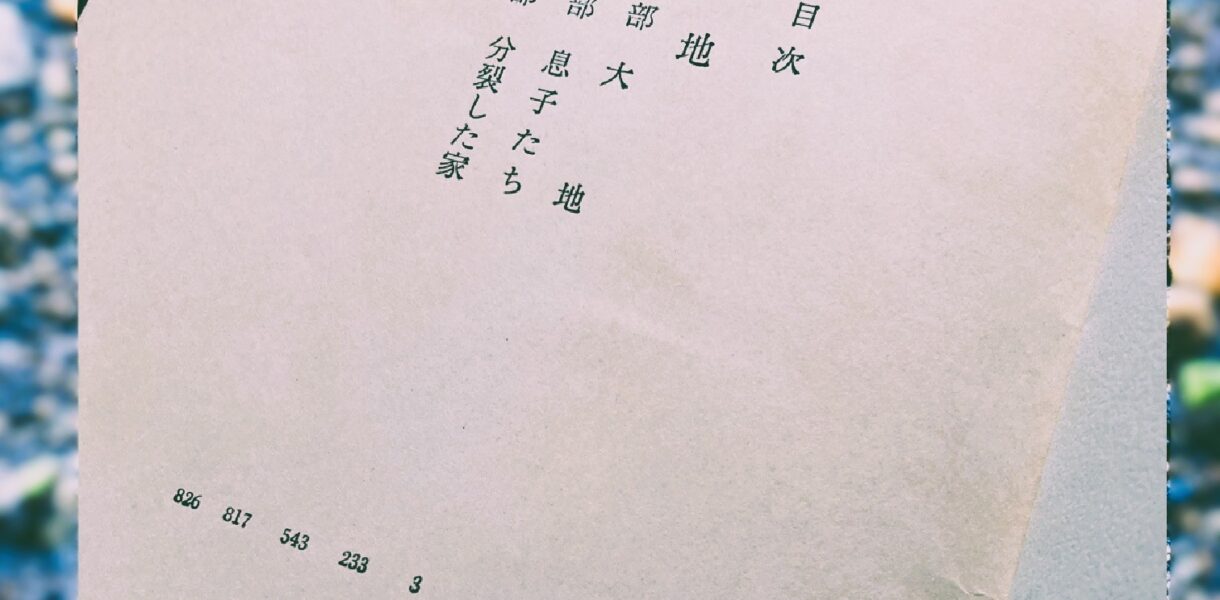 目次
地
部 大地
部 息子たち
部 分裂した家
3
233
543
817
826